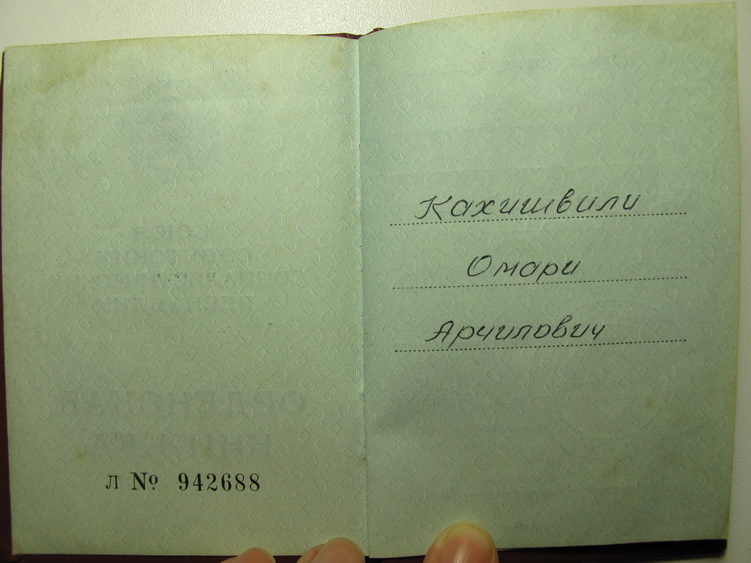 Л № 942688
Кахишвили
Омари
Арчилович